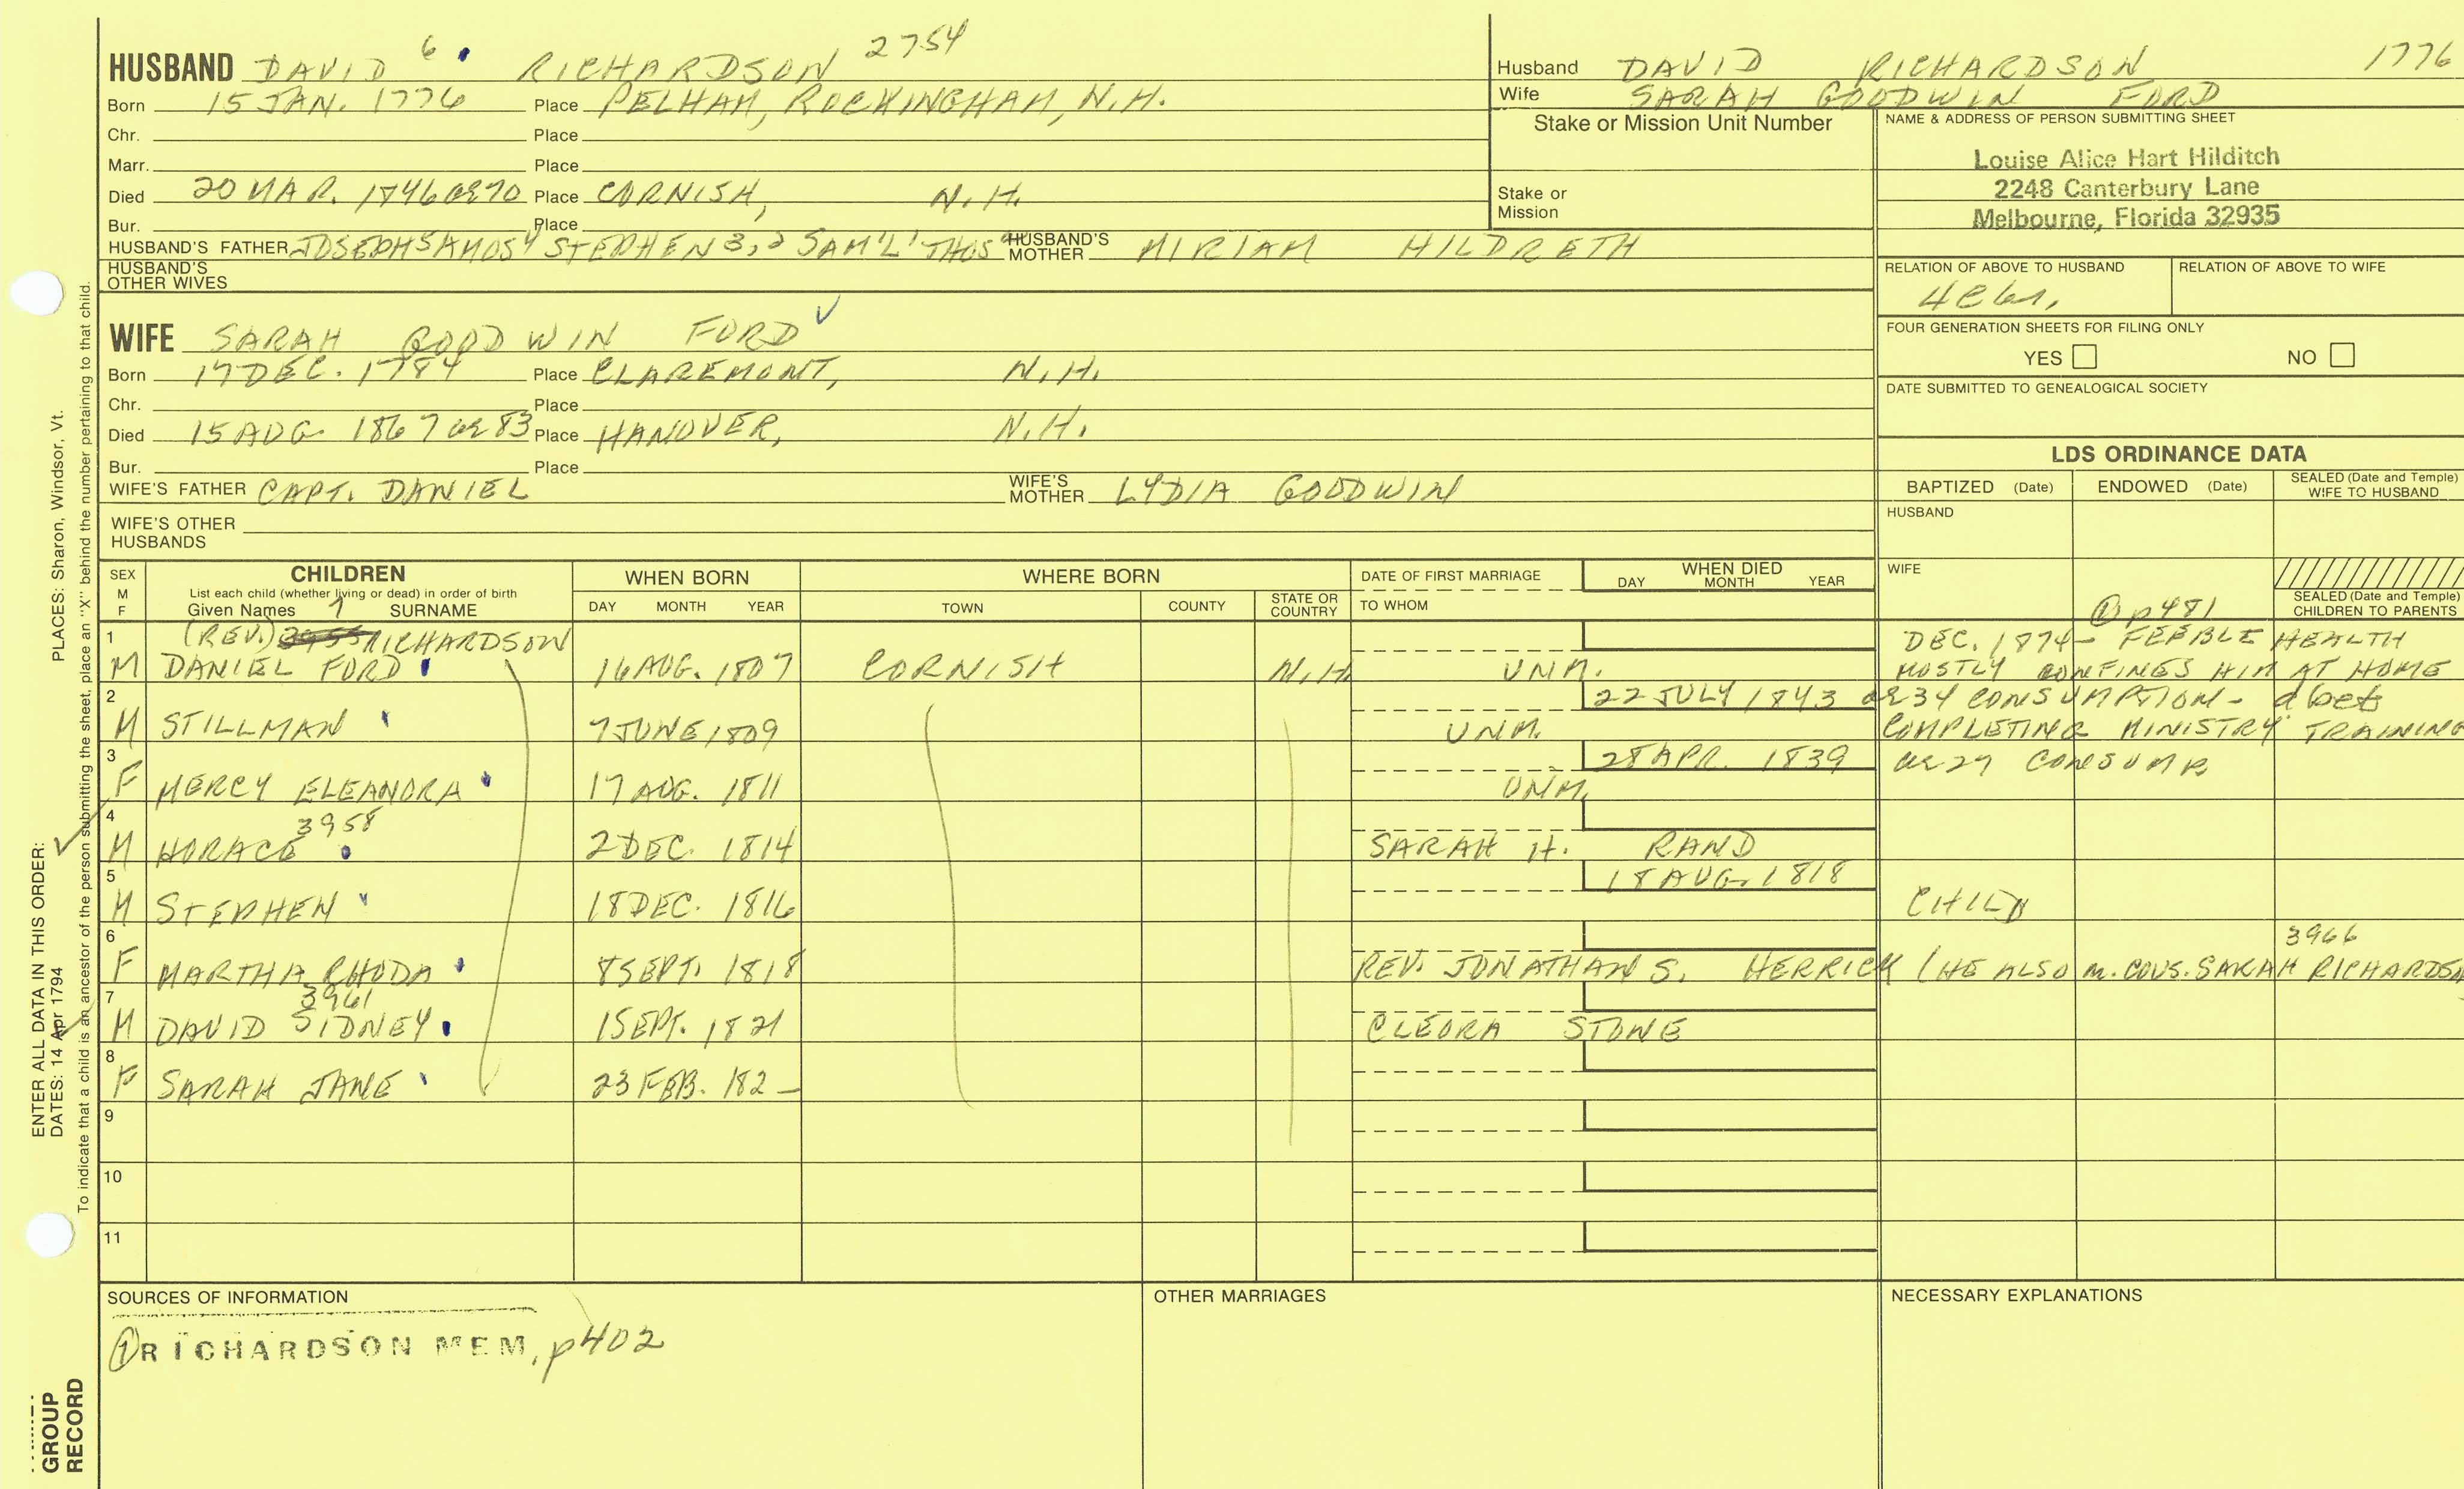 HUSBAND DAVID 6 RICHARDSON 2754
Born 15 JAN. 1776 Place PELHAM, ROCKINGHAM, N.H.
Chr. Place
Marr. Place
Died 20 MAR. 1846 ae 70 Place CORNISH, N.H.
Bur. Place
HUSBAND'S FATHER JOSEPH 5 AMOS 4 STEPHEN 3, 2 SAM'L' THOS HUSBAND'S MOTHER MIRIAM HILDRETH
HUSBAND'S OTHER WIVES
Husband DAVID RICHARDSON 1776
Wife SARAH GOODWIN FORD
Stake or Mission Unit Number
Stake or Mission
NAME & ADDRESS OF PERSON SUBMITTING SHEET
Louise Alice Hart Hilditch
2248 Canterbury Lane
Melbourne, Florida 32935
RELATION OF ABOVE TO HUSBAND RELATION OF ABOVE TO WIFE
FOUR GENERATION SHEETS FOR FILING ONLY
YES NO
DATE SUBMITTED TO GENEALOGICAL SOCIETY
WIFE SARAH GOODWIN FORD
Born 17 DEC. 1784 Place CLAREMONT, N.H.
Chr. Place
Died 15 AUG. 1867 ae 83 Place HANOVER, N.H.
Bur. Place
WIFE'S FATHER CAPT. DANIEL WIFE'S MOTHER LYDIA GOODWIN
WIFE'S OTHER HUSBANDS
LDS ORDINANCE DATA
BAPTIZED (Date) ENDOWED (Date) SEALED (Date and Temple) WIFE TO HUSBAND
HUSBAND
WIFE
SEALED (Date and Temple) CHILDREN TO PARENTS
SEX M F CHILDREN List each child (whether living or dead) in order of birth Given Names 7 SURNAME
WHEN BORN DAY MONTH YEAR
WHERE BORN TOWN COUNTY STATE OR COUNTRY
DATE OF FIRST MARRIAGE TO WHOM
WHEN DIED DAY MONTH YEAR
① p481
1 (REV.) RICHARDSON DEC. 1874 - FEEBLE HEALTH
M DANIEL FORD 16 AUG. 1807 CORNISH N.H. UNM. MOSTLY CONFINES HIM AT HOME
2 22 JULY 1843 ae 34 CONSUMPTION -
M STILLMAN 7 JUNE 1809 UNM. COMPLETING MINISTRY TRAINING
3 28 APR. 1839 ae 27 CONSUMP.
F MERCY ELEANORA 17 AUG. 1811 UNM.
4 3958
M HORACE 2 DEC. 1814 SARAH H. RAND
5 18 AUG. 1818
M STEPHEN 18 DEC. 1816 CHILD
6 3966
F MARTHA RHODA 8 SEPT. 1818 REV. JONATHAN S. HERRICK (HE ALSO m. COUS. SARAH RICHARDSO
7 3961
M DAVID SIDNEY 1 SEPT. 1821 CLEORA STONE
8
F SARAH JANE 23 FEB. 182_
9
10
11
SOURCES OF INFORMATION
① RICHARDSON MEM, p402
OTHER MARRIAGES
NECESSARY EXPLANATIONS
PLACES: Sharon, Windsor, Vt.
ENTER ALL DATA IN THIS ORDER:
DATES: 14 Apr 1794
To indicate that a child is an ancestor of the person submitting the sheet, place an "X" behind the number pertaining to that child.
GROUP
RECORD